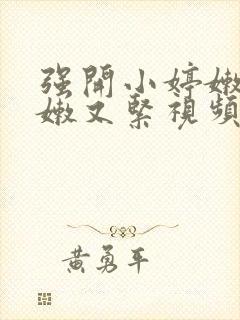 强開小婷嫩
嫩又緊視頻
黃勇平